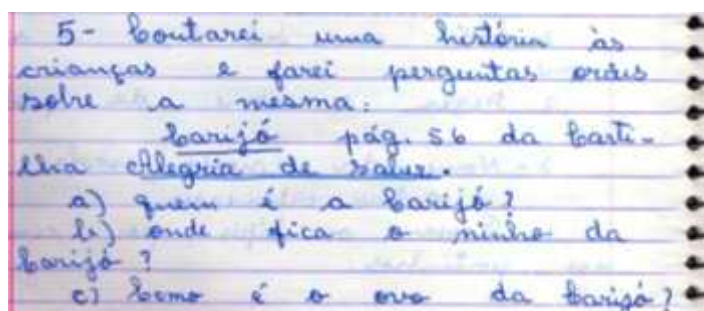 5- Contarei uma história às
crianças e farei perguntas orais
sobre a mesma:
Carijó pág. 56 da Carti-
lha Alegria de saber.
a) quem é a Carijó?
b) onde fica o ninho da
Carijó?
c) Como é o ovo da Carijó?